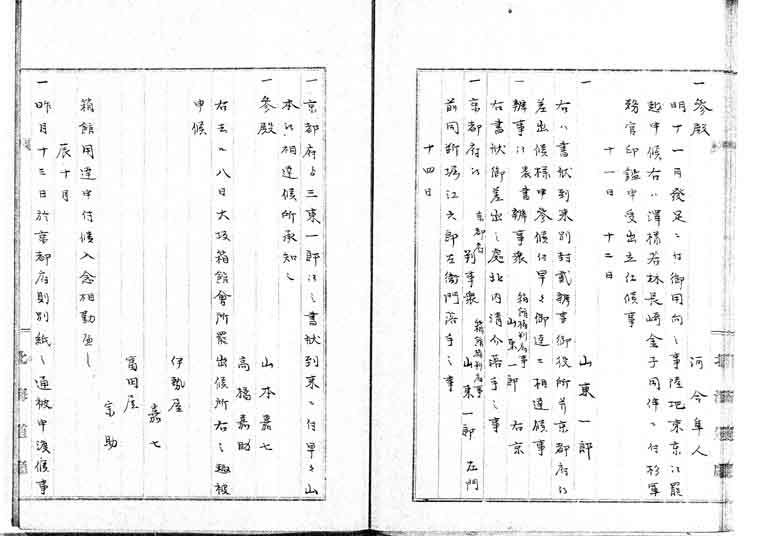 一 參殿　河合隼人
明十一月發足ニ付御用向之事陸地東京江罷
越申候右ハ澤様若林長崎金子同伴ニ付
務官印鑑申受出立仕候事
十一日　十二日
一　山東一郎
右ハ書狀到来別封貳辨事御役所并京都府江
差出候様申参候付早々御達ニ相達候事
辨事江表書辨事衆　箱館裁判府事　山東一郎　右京
右書狀御差出之處北内清介落手之事
一 京都府江　京都府　判事衆　山東一郎　左門
前同断堀江六郎左衛門落手之事
十四日
一 京都府ゟ三東一郎江之書狀到来ニ付早々山
本江相達候所承知之
一 參殿　山本嘉七
高橋嘉助
右去ル八日大坂箱館會所罷出候所右之趣被
申候
伊勢屋
嘉七
富田屋
宗助
箱館用達申付候入念相勤可申
辰十月
一 昨月十三日於京都府別別紙之通被申渡候事
北海道廳